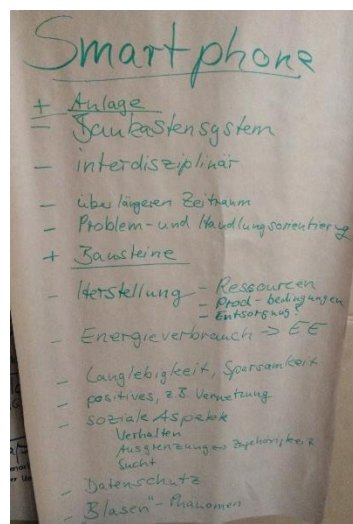 Smartphone
+ Anlage
- Baukastensystem
- interdisziplinär
- über längeren Zeitraum
- Problem- und Handlungsorientierung
+ Bausteine
- Herstellung - Ressourcen
- Prod-bedingungen
- Entsorgung?
- Energieverbrauch -> EE
- Langlebigkeit, Sparsamkeit
- positives, z.B. Vernetzung
- soziale Aspekte
Verhalten
Ausgrenzung Zugehörigkeit
Sucht
- Datenschutz
- "Blasen"-Phänomen